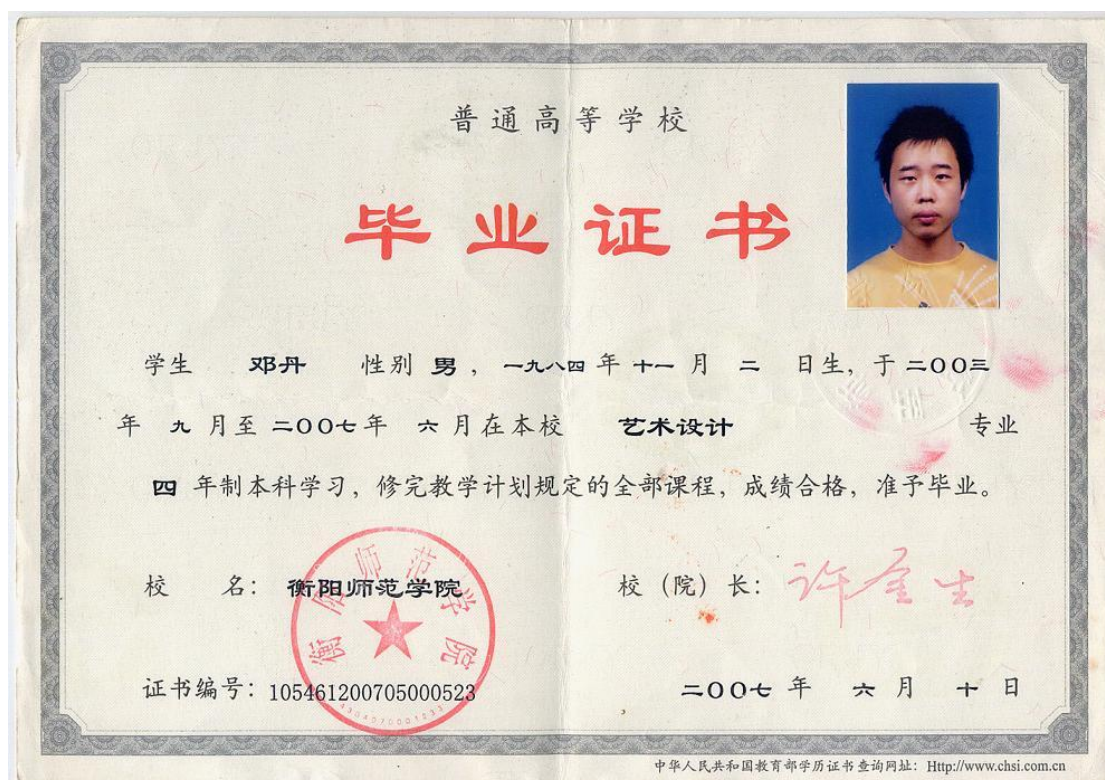 普通高等学校
毕业证书
学生 邓丹 性别 男，一九八四 年 十一 月 二 日生，于 二OO三
年 九 月至 二OO七年 六 月在本校 艺术设计 专业
四 年制本科学习，修完教学计划规定的全部课程，成绩合格，准予毕业。
校 名：衡阳师范学院
衡阳师范学院
校（院）长：许金生
证书编号：105461200705000523
二OO七 年 六 月 十 日
中华人民共和国教育部学历证书查询网址：Http://www.chsi.com.cn